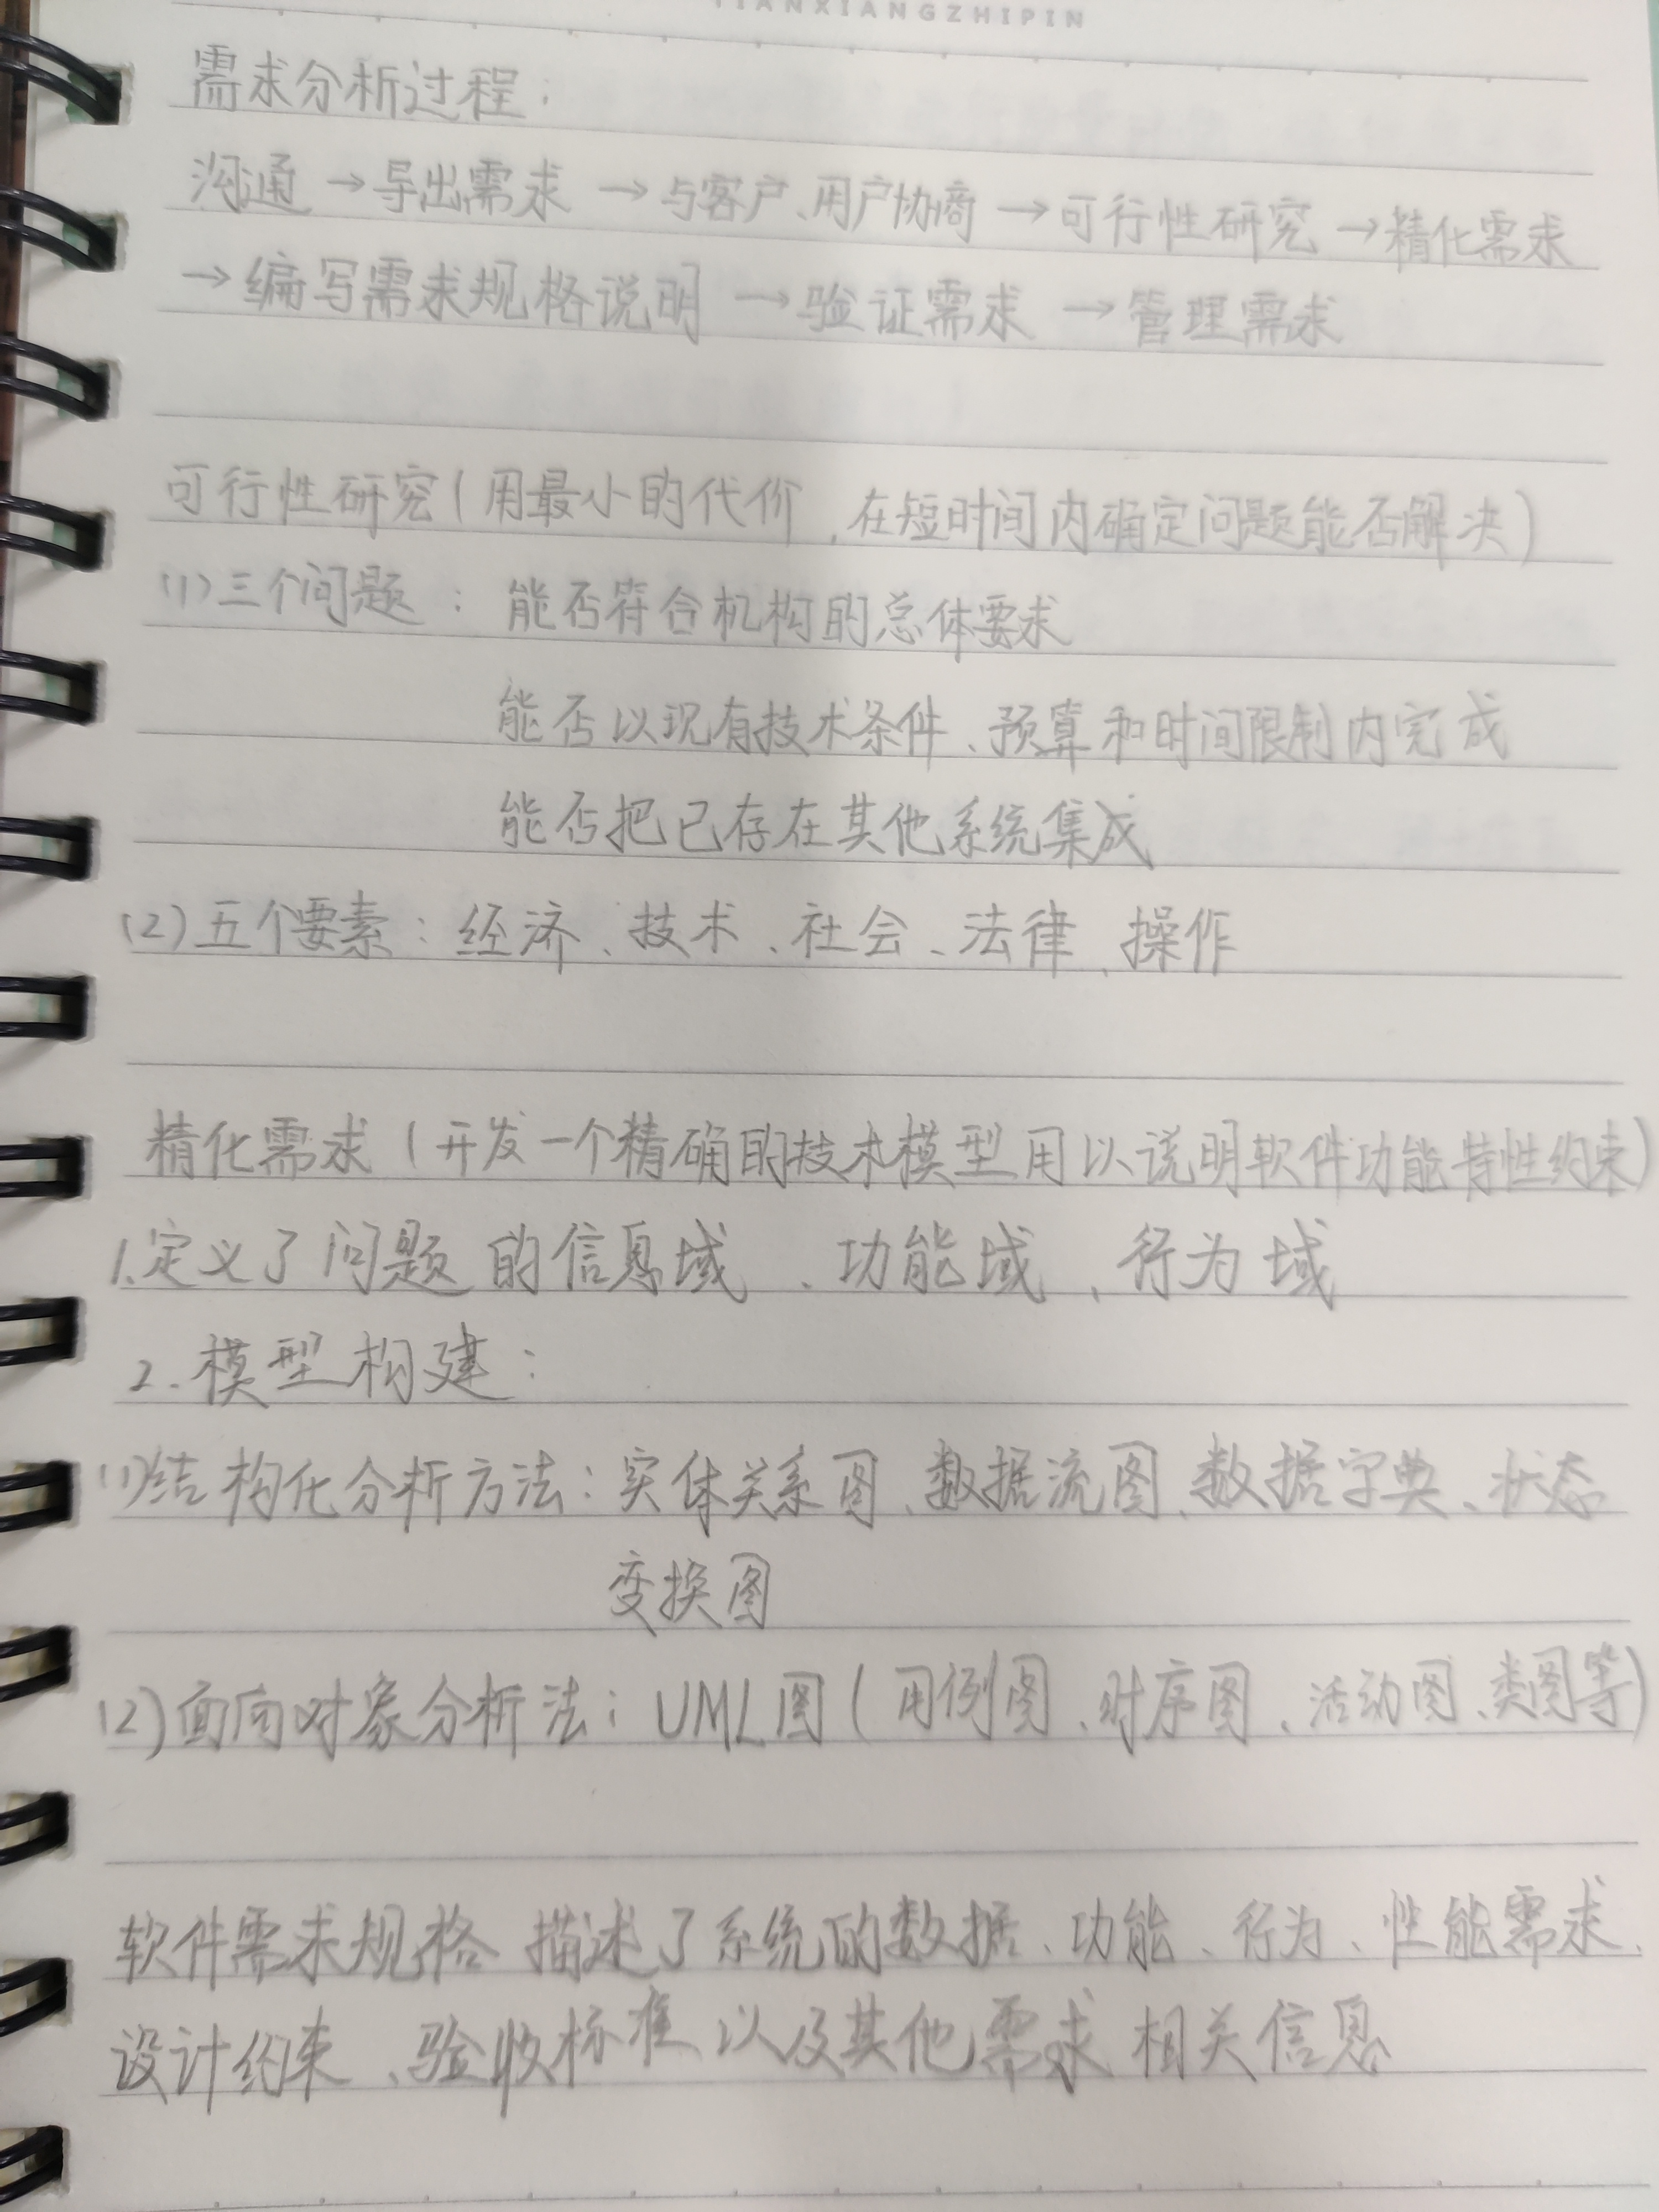 TIANXIANGZHIPIN
需求分析过程:
沟通→导出需求→与客户、用户协商→可行性研究→精化需求
→编写需求规格说明→验证需求→管理需求
可行性研究(用最小的代价,在短时间内确定问题能否解决)
(1)三个问题:能否符合机构的总体要求
能否以现有技术条件、预算和时间限制内完成
能否把已存在其他系统集成
(2)五个要素:经济、技术、社会、法律、操作
精化需求(开发一个精确的技术模型用以说明软件功能特性约束)
1.定义了问题的信息域、功能域、行为域
2.模型构建:
(1)结构化分析方法:实体关系图、数据流图、数据字典、状态
变换图
(2)面向对象分析法:UML图(用例图、时序图、活动图、类图等)
软件需求规格描述了系统的数据、功能、行为、性能需求、
设计约束、验收标准以及其他需求相关信息